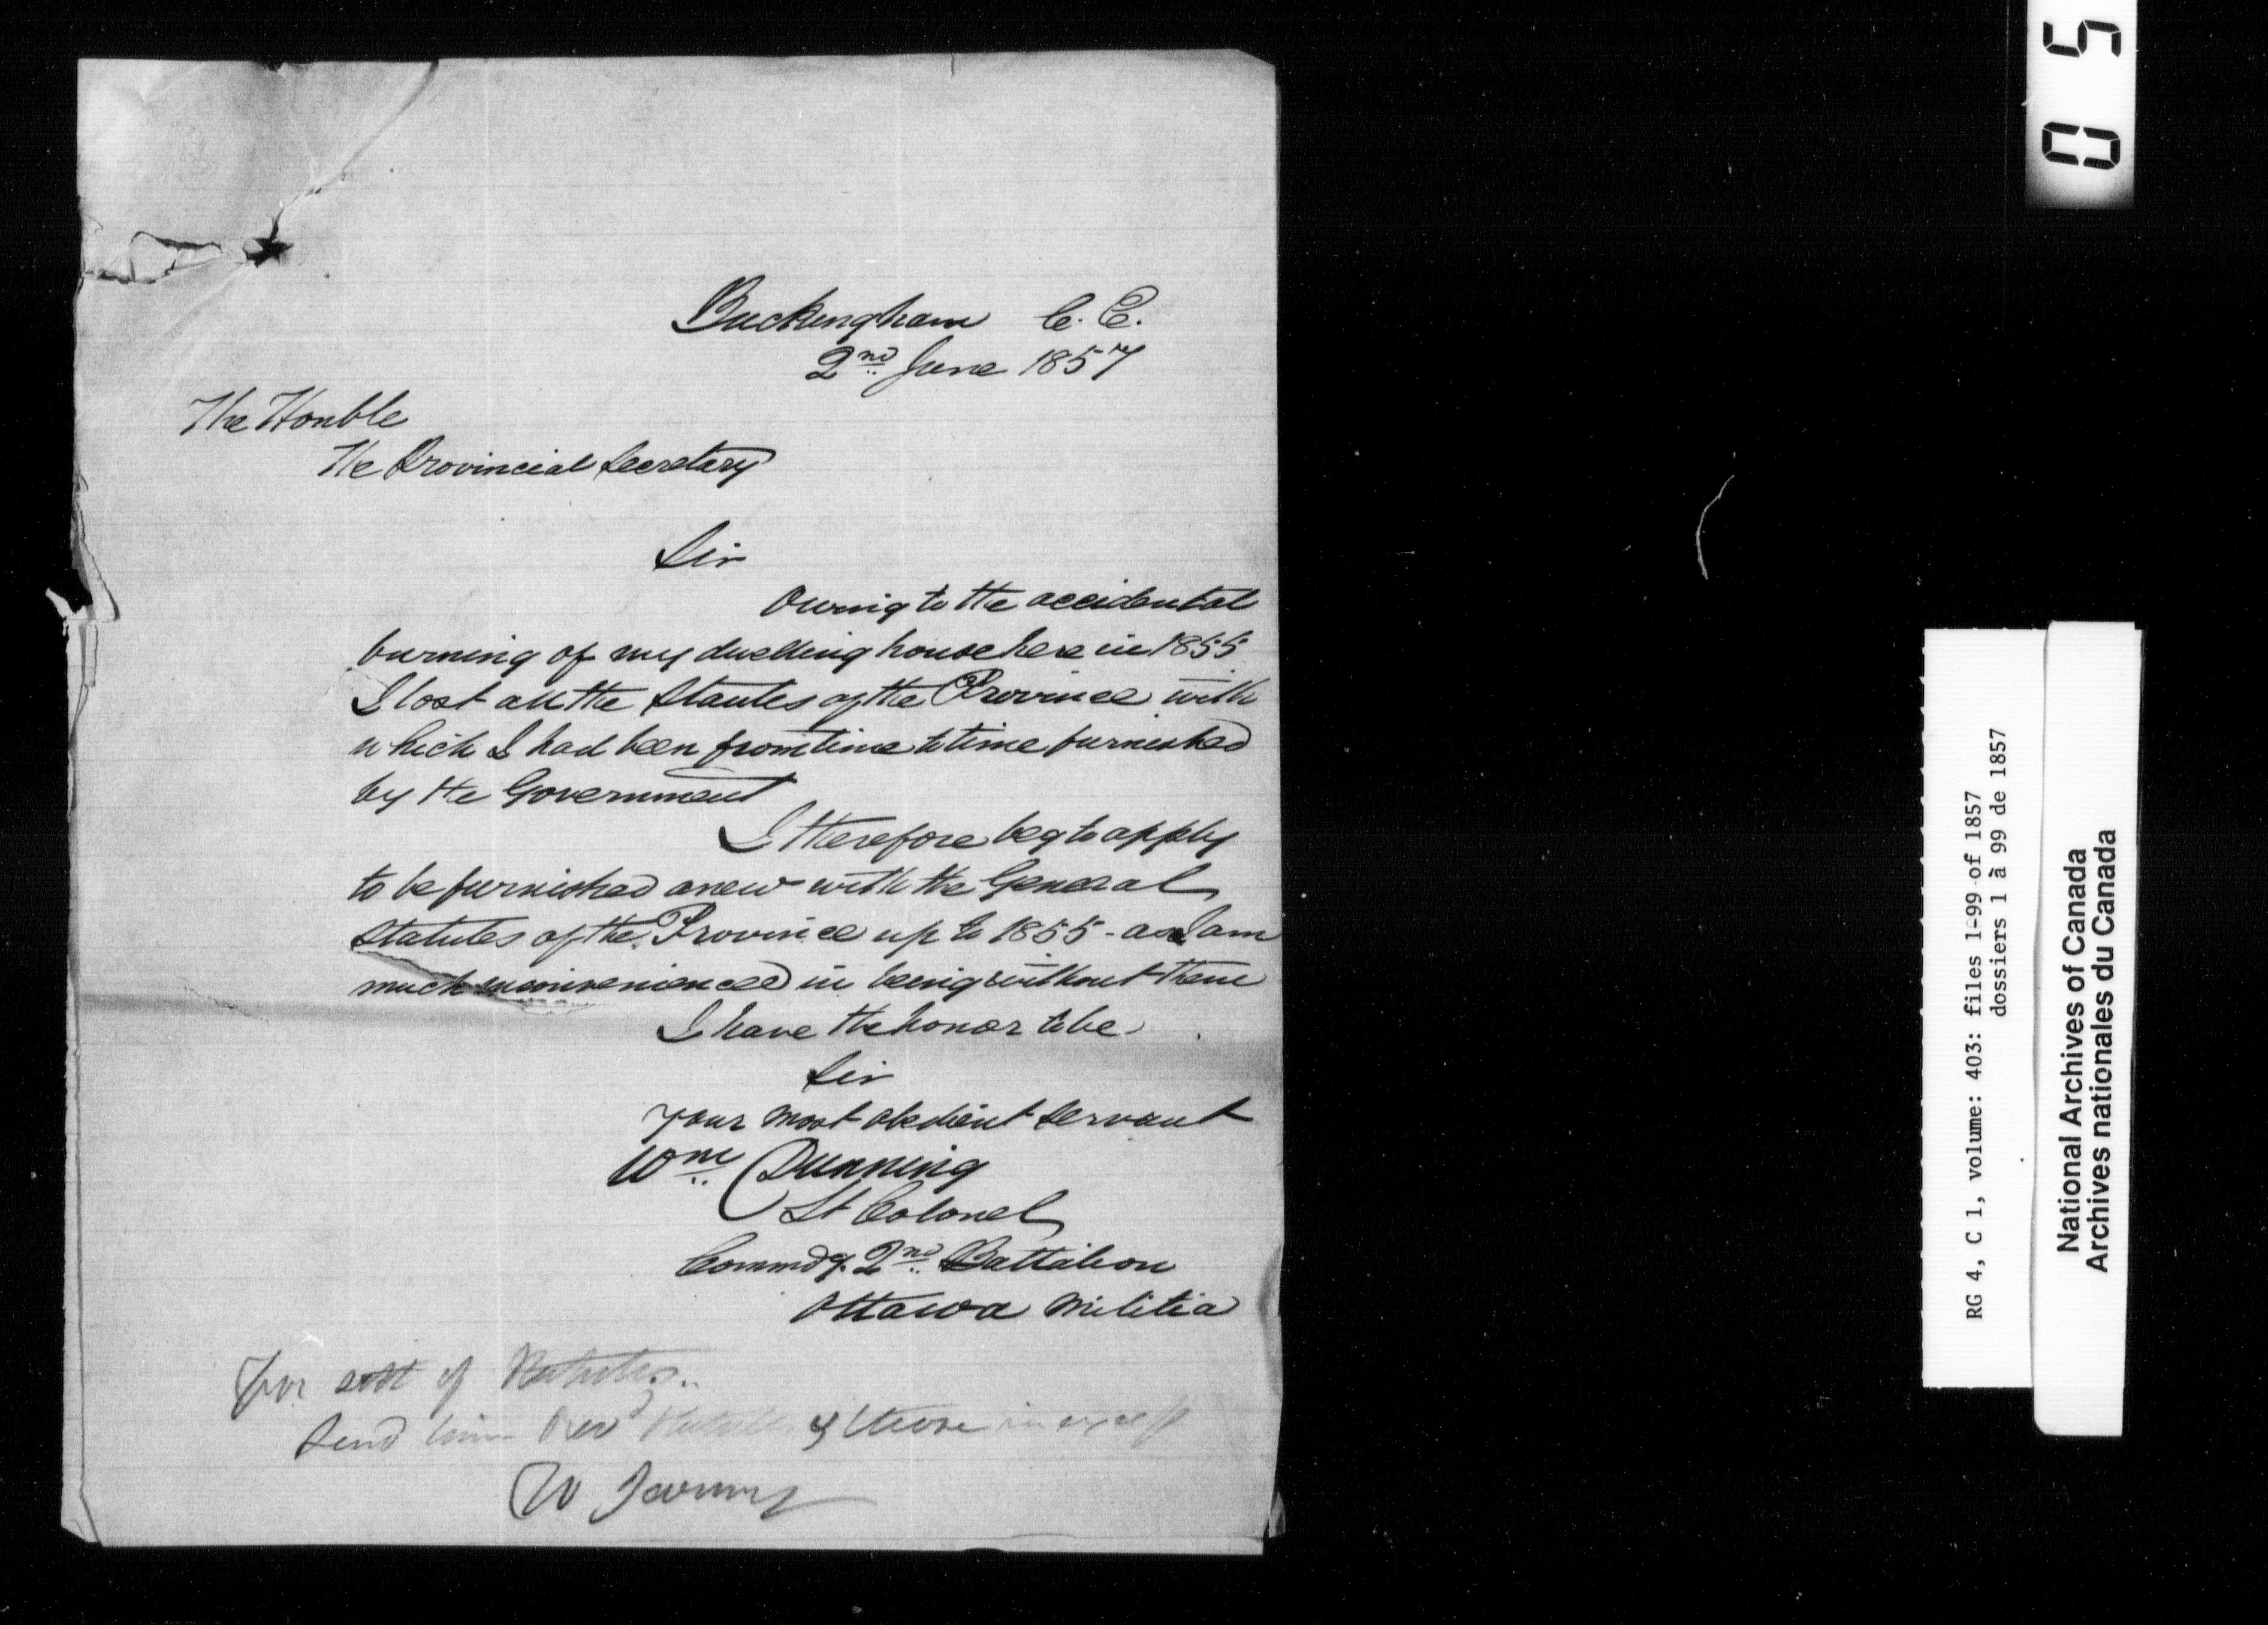 Buckingham C. E.
2nd June 1857
The Honble
The Provincial Secretary
Sir
Owing to the accidental
burning of my dwelling house here in 1855
I lost all the Stautes of the Province with
which I had been from time to time furnished
by the Government
I therefore beg to apply
to be furnished anew with the General
Statutes of the Province up to 1855 - as I am
much inconvenienced in being without them
I have the honor to be
Sir
your most obedient servant
Wm Dunning
Lt Colonel
Commdg. 2nd Battalion
Ottawa Militia
For sett of Statutes..
Send him Revd Statutes & those in excess
W
05
RG 4, C 1, volume: 403: files 1-99 of 1857
dossiers 1 à 99 de 1857
National Archives of Canada
Archives nationales du Canada